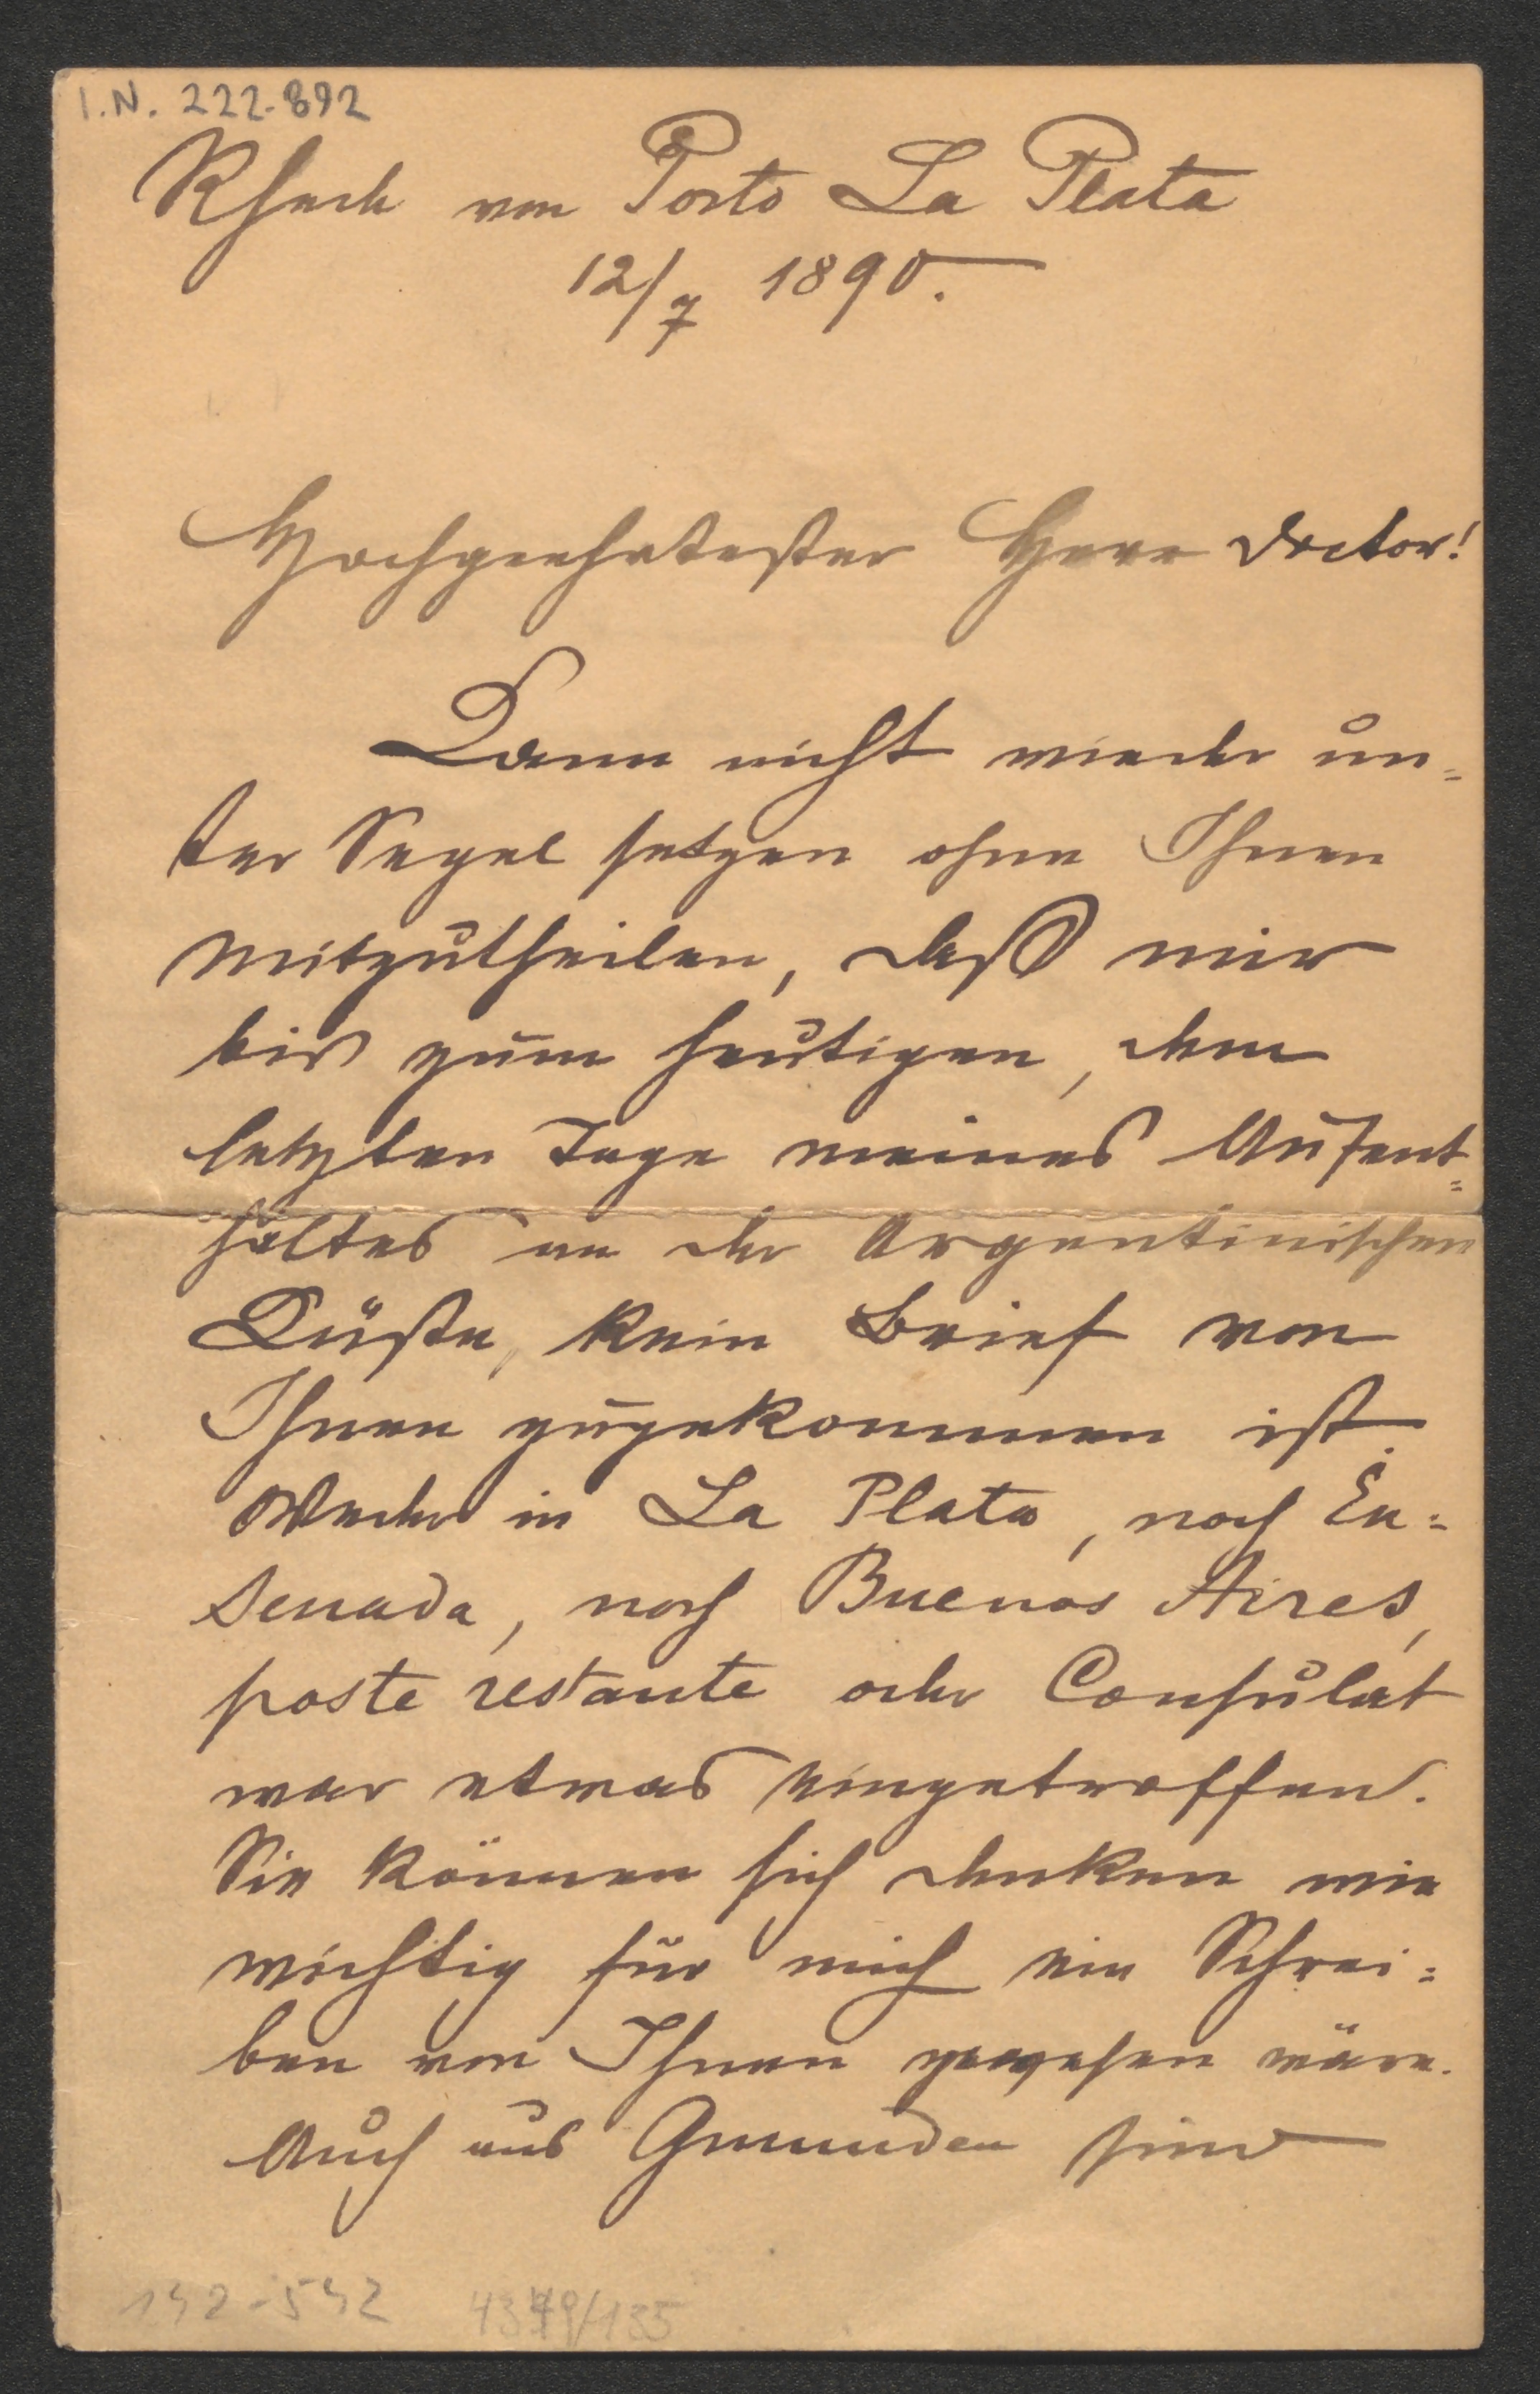 I.N. 222.892
Rhede von Porto La Plata
12/7 1890.
Hochgeehrtester Herr Doctor!
Kann nicht wieder un=
ter Segel setzen ohne Ihnen
mitzutheilen, daß mir
bis zum heutigen, dem
letzten Tage meines Aufent=
haltes an der Argentinischen
Küste, kein Brief von
Ihnen zugekommen ist.
Weder in La Plata, noch En=
senada, noch Buenos Aires,
poste restante oder Consulat
war etwas eingetroffen.
Sie können sich denken wie
wichtig für mich ein Schrei=
ben von Ihnen gewesen wäre.
Auch aus Gmunden sind
142-542 4379/135